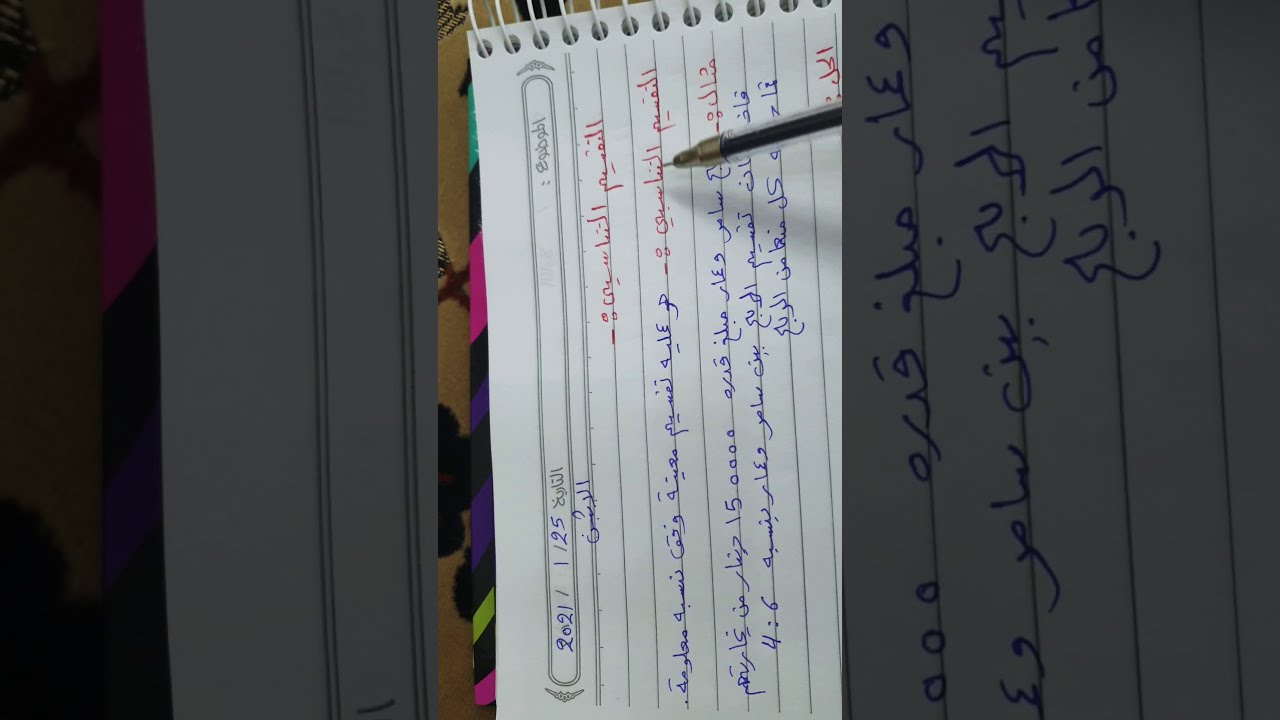 الموضوع :
التاريخ 25 / 1 / 2021
الاثنين
التقسيم التناسبي :-
التقسيم التناسبي :- هو عملية تقسيم معينة وفق نسبة معلومة.
مثال :-
سامر وعمار مبلغ قدره 150000 دينار من تجارتهم
فاذا تقسيم الربح بين سامر وعمار بنسبة 6 : 4
كل منهما من الربح
الحل :